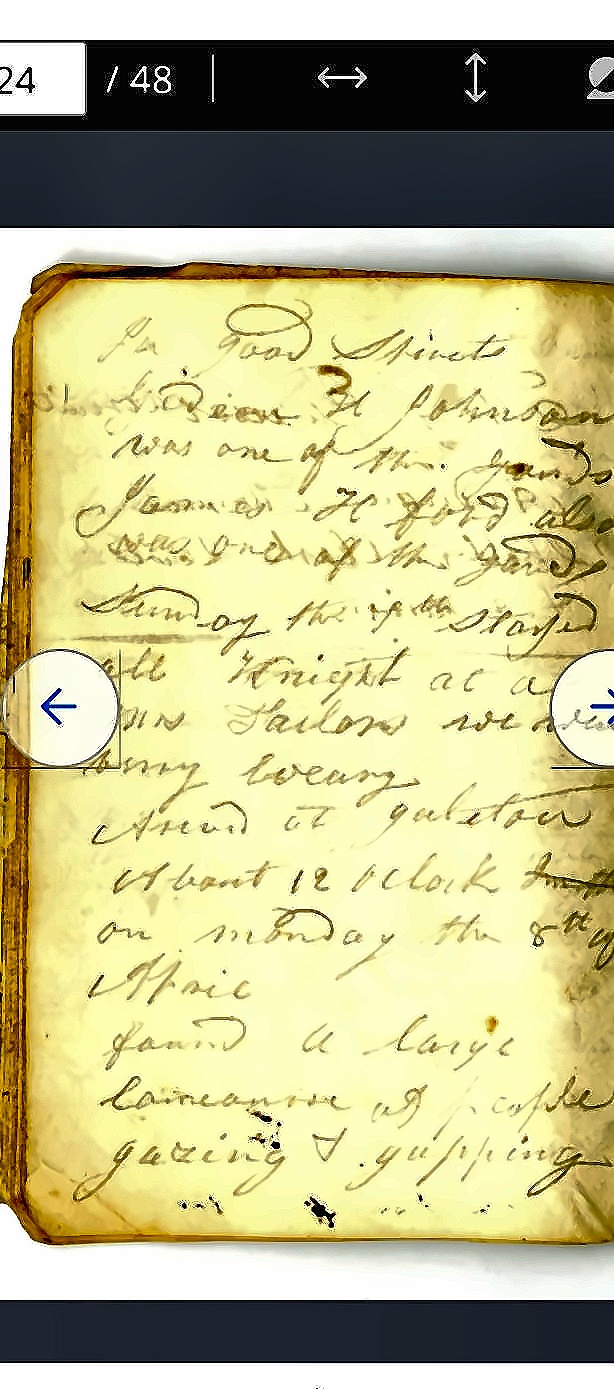 24 / 48
In good Spirits
H Johnson
was one of the gards
James H ford also
was one of the gards
Sunday the 7th Stayed
all Knight at a
Mrs Tailors we
very weary
Arived at galston
About 12 oclock
on monday the 8th of
April
found a large
of people
gazing & gapping